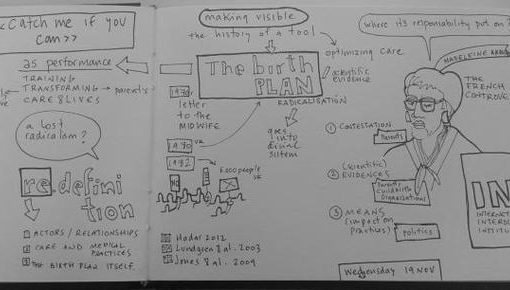 <<Catch me if you
can>>
as performance
TRAINING
TRANSFORMING → parents
CARE & LIVES
a lost
radicalism?
re.defini
tion
1 ACTORS / RELATIONSHIPS
2 CARE AND MEDICAL
PRACTICES
3 THE BIRTH PLAN ITSELF.
making visible
the history of a tool
optimizing care
The birth
PLAN
scientific
evidence
RADICALISATION
letter
to the
MIDWIFE
goes
into
system
1970
1982
6000 people
NO
Hadar 2012
Lundgren & al. 2003
Jones & al. 2009
where is responsability put on?
MADELEINE
THE
FRENCH
1 CONTESTATION
Parents
(scientific)
2 EVIDENCES
Parents
Organizations
3 MEANS
(impact on
practices)
politics
IN
Wednesday 19 NOV